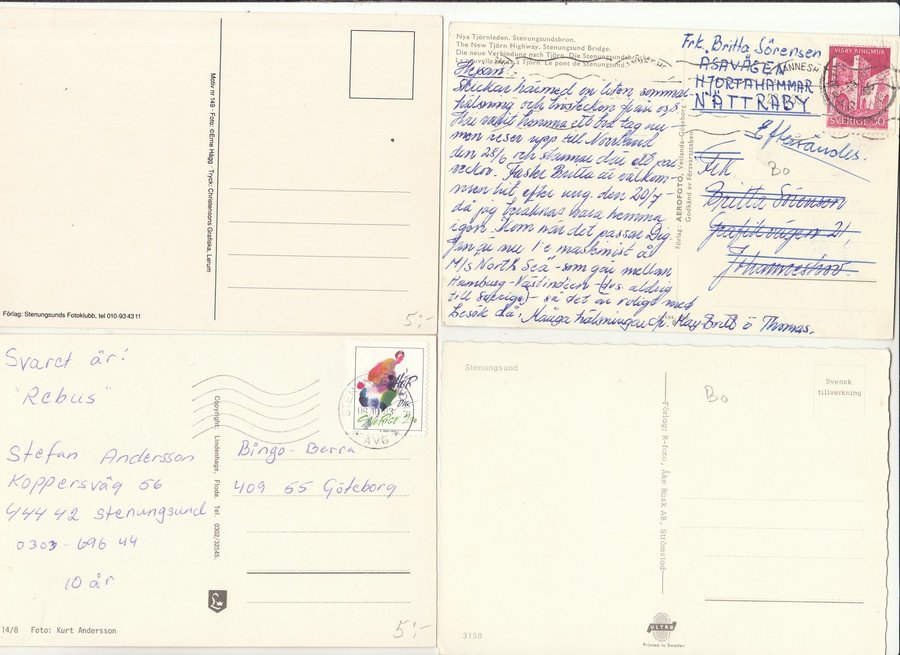 Motiv nr 149 - Foto: ©Erne Hägg - Tryck: Christensons Grafiska, Lerum
Förlag: Stenungsunds Fotoklubb, tel 010-93 43 11
5:-
Nya Tjörnleden. Stenungsundsbron.
The New Tjörn Highway. Stenungsund Bridge.
Die neue Verbindung nach Tjörn. Die Stenungsundsbrücke.
La nouvelle à Tjörn. Le pont de Stenungsund.
Hejsan!
Skickar härmed en liten sommar
hälsning och livstecken från oss
Har varit hemma ett bra tag nu
men reser upp till Norrland
den 28/6 och stannar där ett par
veckor. Fröken Britta är välkom-
men hit efter ung. den 20/7 -
då jag beräknas vara hemma
igen. Kom när det passar Dig.
Jan är nu 1:e maskinist å
M/S North Sea - som går mellan
Hamburg - Västindien - (dvs. aldrig
till Sverige) - så det är roligt med
besök då. Många hälsningar fr. May-Britt o Thomas.
Förlag: AEROFOTO, Vetlanda-Göteborg
Godkänd av Försvarsstaben
Frk. Britta Sörensen
ÅSAVÄGEN
HJORTAHAMMAR
NÄTTRABY
VISBY RINGMUR
SVERIGE 30
Eftersändes.
Bo
Frk.
Britta Sörenson
Grafikvägen 21,
Johanneshov.
Svaret är:
"Rebus"
Stefan Andersson
Koppersväg 56
444 42 Stenungsund
0303-696 44
10 år
14/8 Foto: Kurt Andersson
Copyright: Lindenhags, Floda. Tel. 0302/32545.
SVERIGE
Bingo-Berra
409 55 Göteborg
5:-
Stenungsund
Bo
Svensk
tillverkning
Förlag: R-foto, Åke Rusk AB, Strömstad
3150
ULTRA
Printed in Sweden